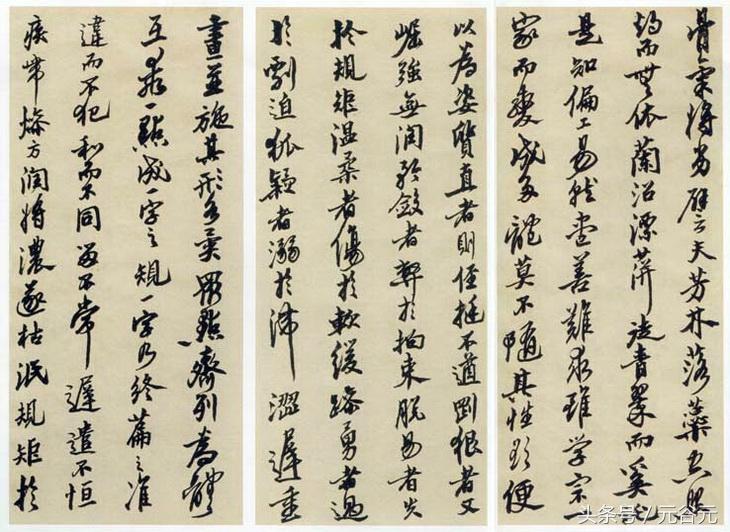 骨氣將劣譬夫芳林落蘂空照
灼而無依蘭沼漂蓱徒青翠而奚托
是知偏工易就盡善難求雖學宗一
家而變成多體莫不隨其性欲便
以為姿質直者則俓挺不遒剛狠者又
崛強無潤矜斂者弊於拘束脫易者失
於規矩溫柔者傷於軟緩躁勇者過
於剽迫狐疑者溺於滯澀遲重
畫並施其形各異眾點齊列為體
互乖一點成一字之規一字乃終篇之准
違而不犯和而不同留不常遲遣不恒
疾帶燥方潤將濃遂枯泯規矩於
头条号/元谷元